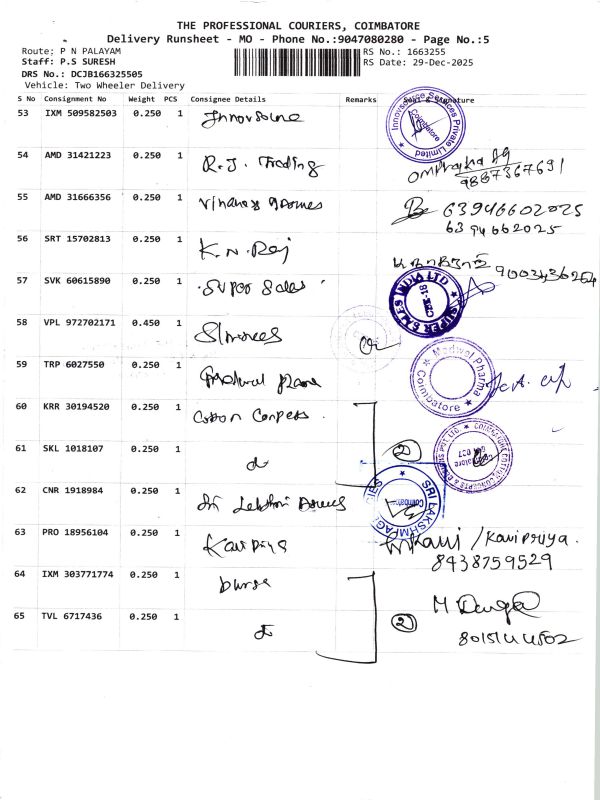 THE PROFESSIONAL COURIERS, COIMBATORE
Delivery Runsheet - MO - Phone No.:9047080280 - Page No.:5
Route: P N PALAYAM
RS No.: 1663255
Staff: P.S SURESH
RS Date: 29-Dec-2025
DRS No.: DCJB166325505
Vehicle: Two Wheeler Delivery
S No Consignment No Weight PCS Consignee Details Remarks Seal & Signature
53 IXM 509582503 0.250 1 Innovsource
Innovsource Services Private Limited Coimbatore
54 AMD 31421223 0.250 1 R.J. Trading
9887367691
55 AMD 31666356 0.250 1
63946602025
6394662025
56 SRT 15702813 0.250 1 K.N. Raj
57 SVK 60615890 0.250 1 Super Sales
SUPER SALES INDIA LTD CBE-18
58 VPL 972702171 0.450 1
59 TRP 6027550 0.250 1
Medwol Pharma Coimbatore
60 KRR 30194520 0.250 1 Cotton Concepts
61 SKL 1018107 0.250 1 do
2
62 CNR 1918984 0.250 1 Sri Lakshmi
SRI LAKSHMI AGENCIES Coimbatore
63 PRO 18956104 0.250 1 Kavipriya
/Kavipriya.
8438759529
64 IXM 303771774 0.250 1
65 TVL 6717436 0.250 1 do
2